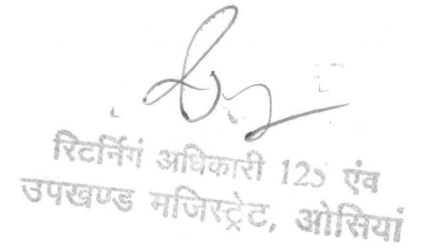 रिटर्निगं अधिकारी 125 एंव
उपखण्ड मजिस्ट्रेट, ओसियां